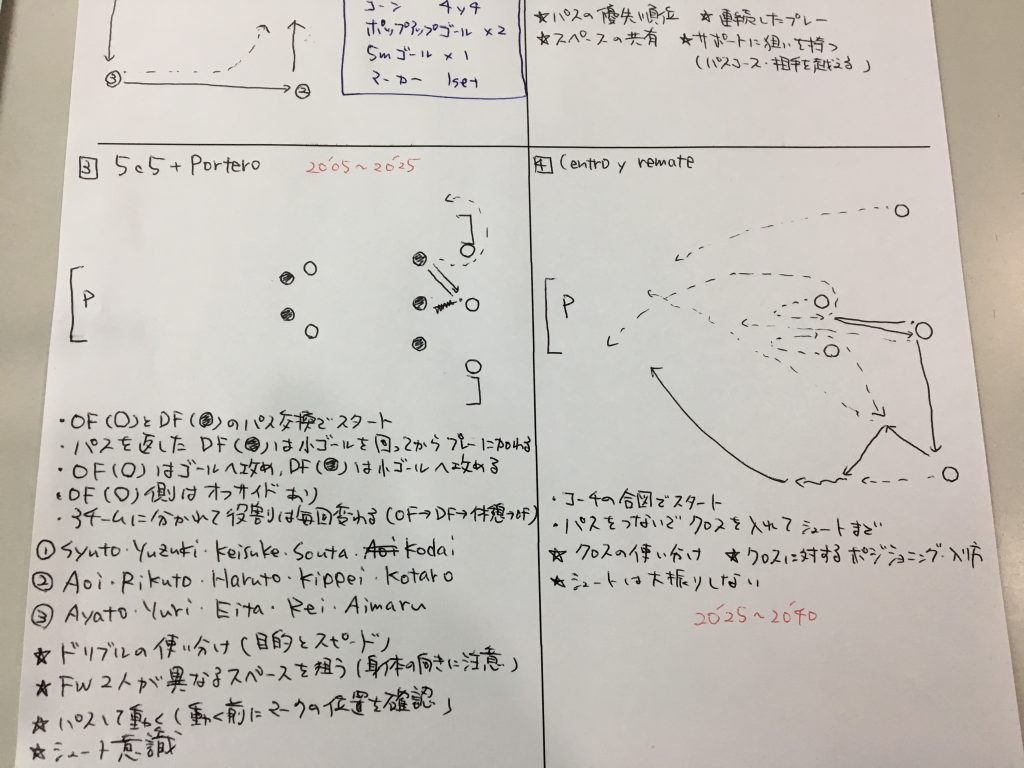 コーン 4 y 4
ポップアップゴール ×2
5mゴール ×1
マーカー 1set
③
②
☆パスの優先順位 ☆連続したプレー
☆スペースの共有 ☆サポートに狙いを持つ
(パスコース・相手を越える)
3 5c5 + Portero 20'05~20'25
P
・OF(○)とDF(●)のパス交換でスタート
・パスを返したDF(●)は小ゴールを回ってからプレーに加わる
・OF(○)はゴールへ攻め,DF(●)は小ゴールへ攻める
・OF(○)側はオフサイドあり
・3チームに分かれて役割は毎回変わる(OF→DF→休憩→OF)
① Syuto・Yuzuki・Keisuke・Souta・Aoi Kodai
② Aoi・Rikuto・Haruto・Kippei・Kotaro
③ Ayato・Yuri・Eita・Rei・Aimaru
☆ドリブルの使い分け(目的とスピード)
☆FW2人が異なるスペースを狙う(身体の向きに注意)
☆パスして動く(動く前にマークの位置を確認)
☆シュート意識
4 Centro y remate
P
・コーチの合図でスタート
・パスをつないでクロスを入れてシュートまで
☆クロスの使い分け ☆クロスに対するポジショニング・入り方
☆シュートは大振りしない
20'25~20'40